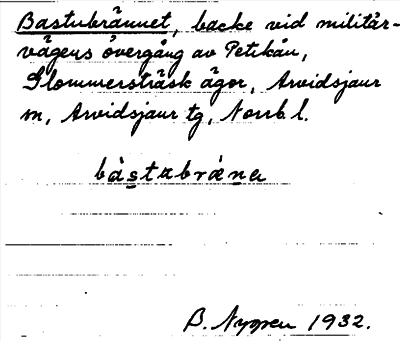 Bastubrännet, backe vid militär-
vägens övergång av Petikån,
Glommersträsk ägor, Arvidsjaur
sn, Arvidsjaur tg, Norrb. l.
bàs̲tabrǽn̲a
B. Nygren 1932.